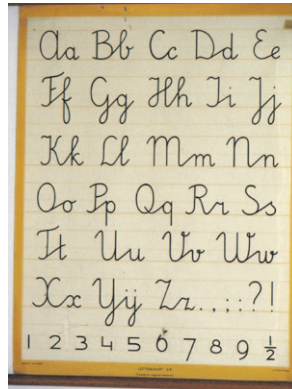 Aa Bb Cc Dd Ee
Ff Gg Hh Ii Jj
Kk Ll Mm Nn
Oo Pp Qq Rr Ss
Tt Uu Vv Ww
Xx IJij Zz.,;:?!
1 2 3 4 5 6 7 8 9 ½